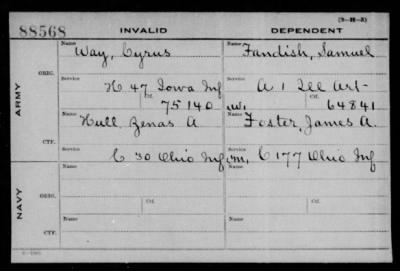 (3-31-3)
88568 INVALID DEPENDENT
Name Way, Cyrus Name Fandish, Samuel
ARMY
ORIG. Service H 47 Iowa Inf Service A 1 Ill Art-
Ctf. 75140 w. Ctf. 64841
Name Hull Zenas A Name Foster, James A.
CTF. Service C 30 Ohio Inf m, Service C 177 Ohio Inf
NAVY
Name Name
ORIG. Service Ctf. Service Ctf.
Name Name
CTF. Service Service